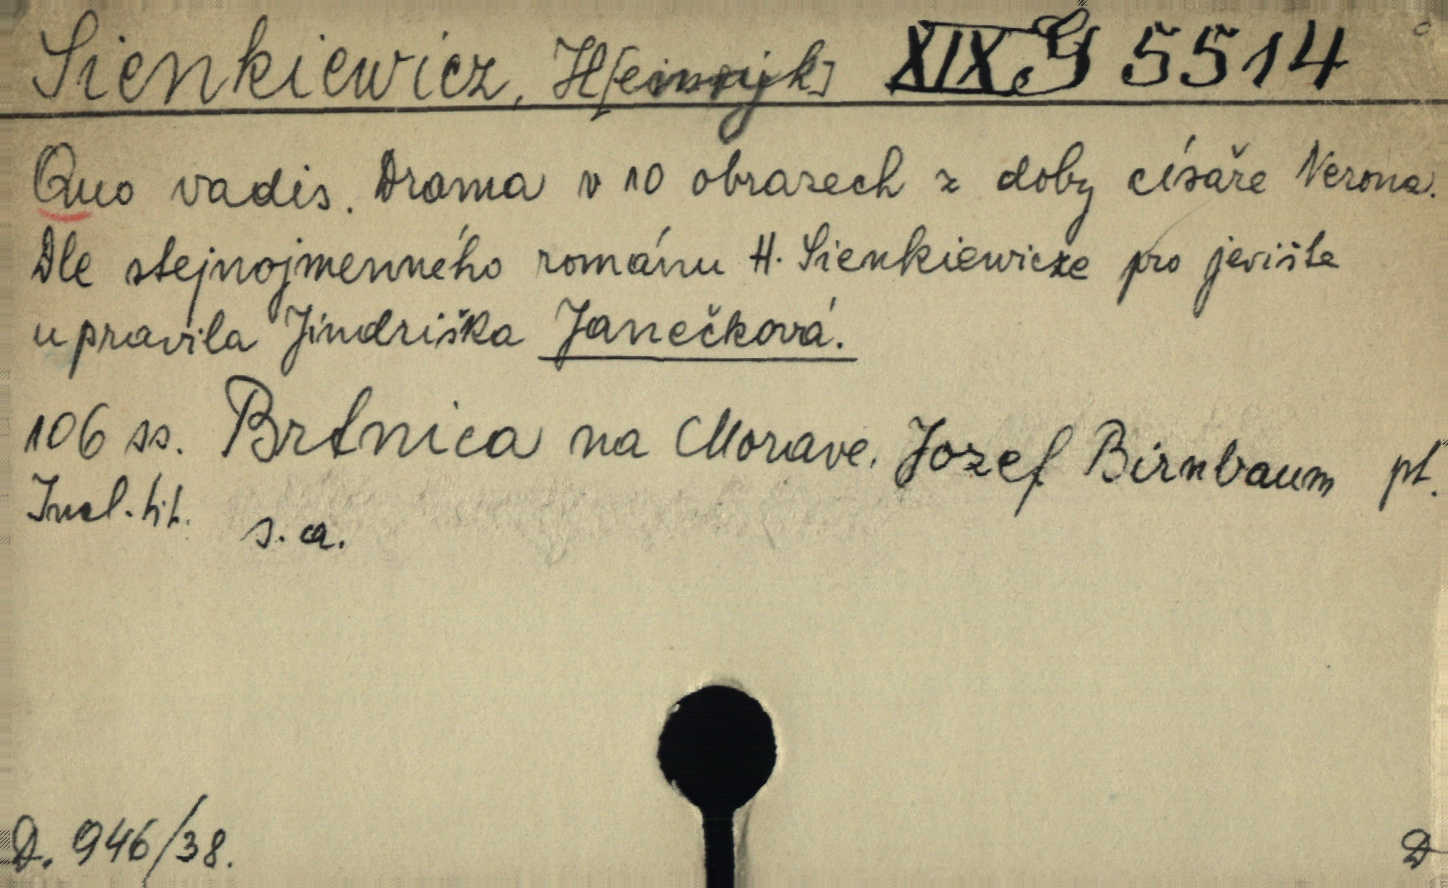 Sienkiewicz, H[einryk] XIX G 5514
Quo vadis. Drama v 10 obrazech z doby císáře Nerona.
Dle stejnojmenného románu H. Sienkiewicze pro jeviště
upravila Jindriška Janečková.
106 ss. Brtnica na Morave. Jozef Birnbaum pt.
Incl. tit. s. a.
D. 946/38.
D